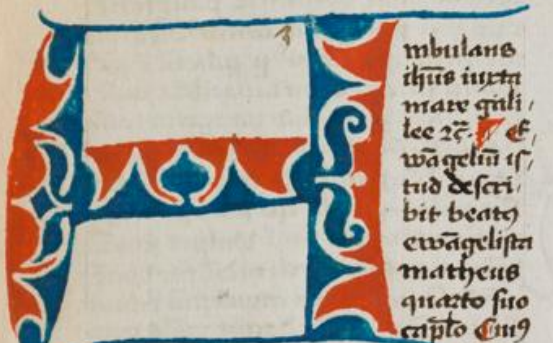 Ambulans
ihūs iuxta
mare gali/
lee ⁊c̄. E/
wāgeliū is/
tud descri/
bit beatꝯ
ewāgelista
matheus
quarto suo
capl̄o Cuiꝯ